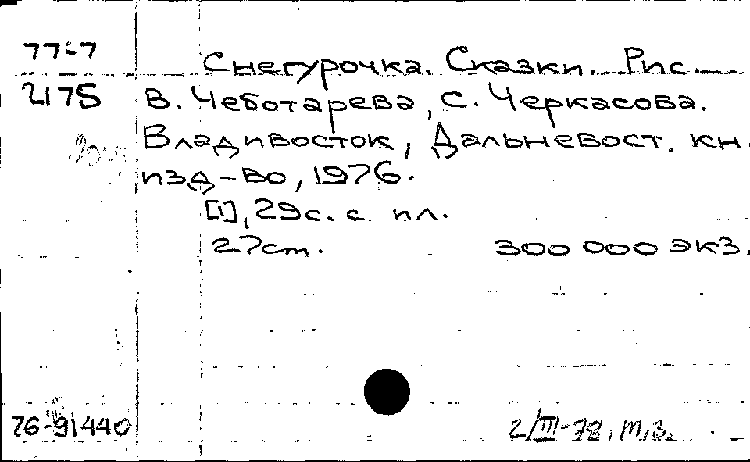 77-7
Снегурочка. Сказки. Рис.
2175
В. Чеботарева, С. Черкасова.
Владивосток, Дальневост. кн.
изд-во, 1976.
[1], 29с. с ил.
27см. 300 000 экз.
76-91440
2/III-78, М.В.